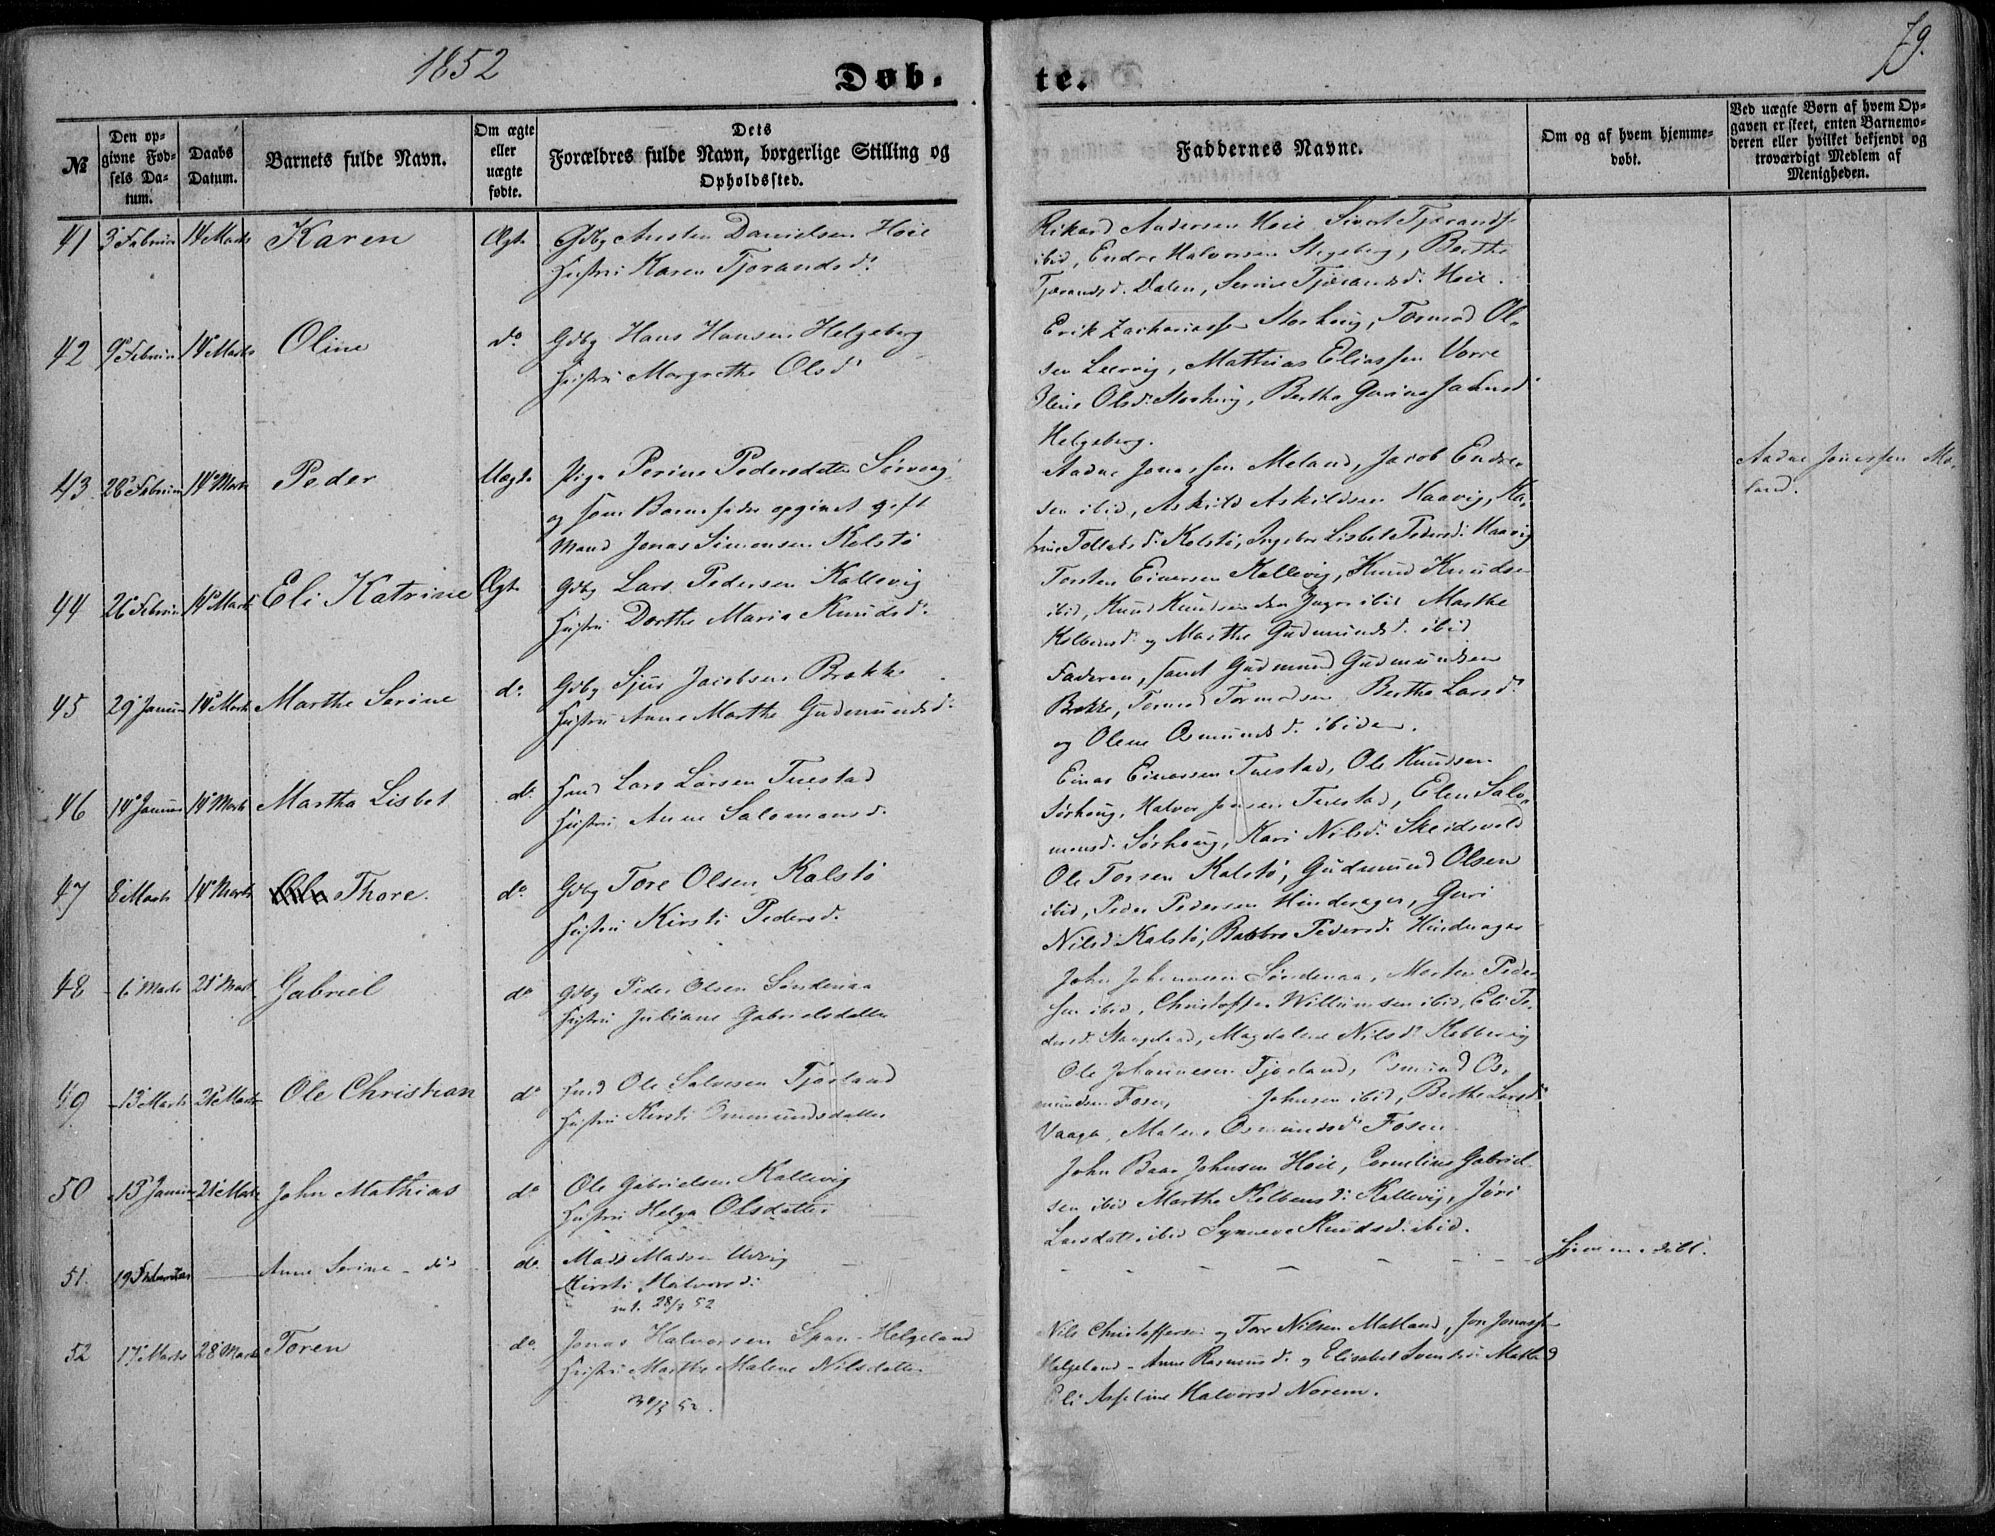 1852
79.
Døb- te.
№
Den opgivne Fødsels Datum.
Daabs Datum.
Barnets fulde Navn.
Om ægte eller uægte fødte.
Dets
Forældres fulde Navn, borgerlige Stilling og
Opholdssted.
Faddernes Navne.
Om og af hvem hjemmedøbt.
Ved uægte Børn af hvem Opgaven er skeet, enten Barnemoderen eller hvilket bekjendt og troværdigt Medlem af Menigheden.
41 3 Februar 14 Marts Karen Ægte Gdbg Austen Danielsen Høie
Hustru Karen Tjorandsd.
Rikard Andersen Høie Sivert
ibid, Endre Halvorsen Berthe
Tjørandsd. Dalen, Serine Tjøransd. Høie.
42 9 Februar 14 Marts Oline do Gdbg Hans Hansen Helgeberg
Hustru Margrethe Olsd
Erik Zachariassen Tormod Ol-
sen Mathias Eliassen Vorre
Olsd. Bertha
Helgeberg.
43. 28 Februar 14 Marts Peder Uægte Pige Perine Pedersdatter
og som Barnefader opgivet gift
Mand Jonas Simonsen Kolstø
Aadne Jonassen Meland, Jacob Endre-
sen ibid, Askild Askildsen Haavig, Ka-
trine d. Kolstø, Lisbet Pedersd. Haavig
Aadne Jonassen Me-
land.
44 26 Februar 14 Marts Eli Katrine Ægte Gdbg Lars Pedersen Kallevig
Hustru Dorthe Maria Knudsd.
Torsten Einersen Kallevig, Knud Knudsen
ibid, Knud Knudsen den Yngre ibid Marthe
Kolbensd. og Marthe Gudmundsd. ibid
45 29 Januar 14 Marts Marthe Serine do Gdbg Sjur Jacobsen Brekke
Hustru Anne Marthe Gudmundsd.
Faderen, samt Gudmund Gudmundsen
Brekke, Tormod Tormodsen Berthe Larsd.
og Olene Osmundsd. ibidem.
46 14 Januar 14 Marts Martha Lisbet do. Lars Larsen Tuestad
Hustru Anne Salomonsd.
Einar Einarsen Tuestad, Ole Knudsen
Sørhoug, Halvor Jensen Tuestad, Elen Salo-
monsd. Sørhoug, Kari Nilsd. Skeidsvold
47 8 Marts 14 Marts Ole Thore. do Gdbg Tore Olsen Kalstø
Hustru Kirsti Pedersd.
Ole Torsen Kalstø, Gudmund Olsen
ibid, Peder Pedersen Hinderager, Guri
Nilsd. Kalstø, Barbro Pedersd. Hinderager
48 6 Marts 21 Marts Gabriel do Gdbg Peder Olsen Søndenaa
Hustru Juliane Gabrielsdatter
John Johannesen Søndenaa, Morten Peder-
sen ibid, Christoffer Willumsen ibid, Eli Pe-
dersd. Stangeland, Magdalene Nilsd.
49 13 Marts 21 Marts Ole Christian do Ole Salvesen Tjøsland
Hustru Kirsti Ommundsdatter
Ole Johannesen Tjøsland, Osmund Os-
mundsen Fosen, Johnsen ibid, Berthe Larsd
Vaage, Malene Osmundsd. Fosen.
50 13 Januar 21 Marts John Mathias do Ole Gabrielsen Kallevig
Hustru Helga Olsdatter
John Baar Johnsen Høie, Cornelius Gabriel-
sen ibid Marthe Kolbensd. Kallevig, Jøri
Larsdatter ibid Synneva Knudsd. ibid.
51. 19 Februar Anne Serine do. Mads Madsen
Kirsti Halvorsd:
int. 28/3 52
Hjemmedøbt.
52 17 Marts 28 Marts Toren do. Jonas Halvorsen Helgeland
Hustru Marthe Malene Nilsdatter
30/3 52.
Nils Christoffersen og Tore Nilsen Matland, Jon Jonassen
Helgeland - Anne Rasmusd. og Elisabet Svendsd. Matland
Eli Asseline Halvorsd Norem.